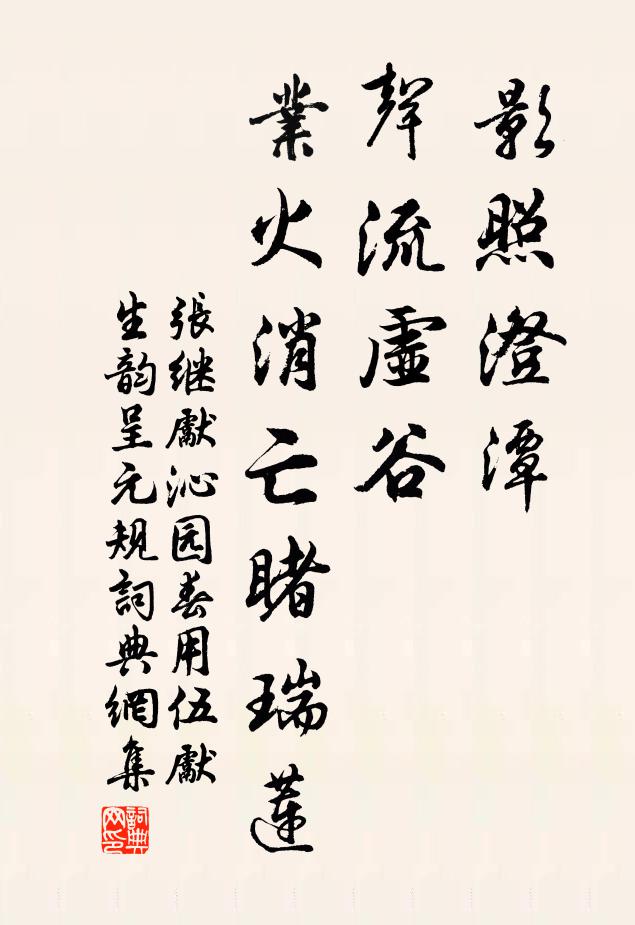 影照澄潭
聲流虛谷
業火消亡睹瑞蓮
張继獻沁园春用伍獻
生韵呈元规詞典網集
詞典
网印